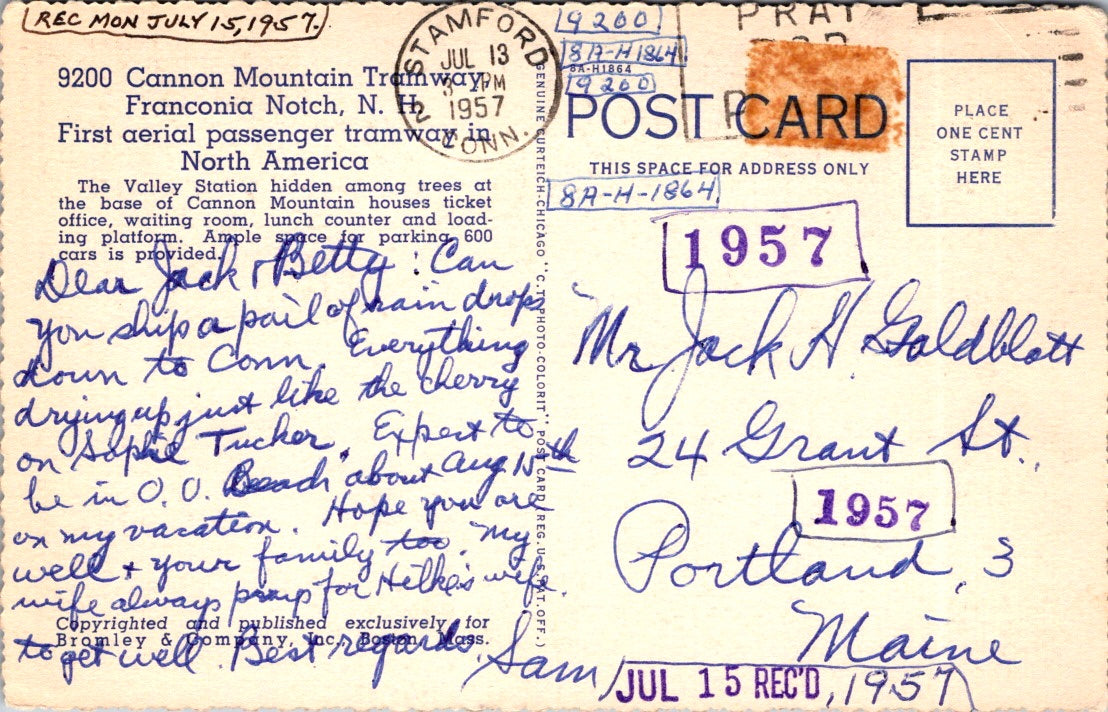 REC MON JULY 15, 1957.
9200 Cannon Mountain Tramway,
Franconia Notch, N. H.
First aerial passenger tramway in
North America
The Valley Station hidden among trees at
the base of Cannon Mountain houses ticket
office, waiting room, lunch counter and load-
ing platform. Ample space for parking 600
cars is provided.
Dear Jack & Betty: Can
you ship a pail of rain drops
down to Conn. Everything
drying up just like the cherry
on Sophie Tucker. Expect to
be in O.O. Beach about Aug 15th
on my vacation. Hope you are
well & your family too. My
wife always prays for wife.
to get well. Best regards. Sam
Copyrighted and published exclusively for
Bromley & Company, Inc., Boston, Mass.
STAMFORD
JUL 13
PM
1957
2 CONN.
PRAY
FOR
P
9200
8A-H1864
8A-H1864
9200
GENUINE CURTEICH-CHICAGO "C.T. PHOTO-COLORIT" POST CARD (REG. U.S. PAT. OFF.)
POST CARD
THIS SPACE FOR ADDRESS ONLY
PLACE
ONE CENT
STAMP
HERE
8A-H-1864
1957
Mr. Jack H. Goldblatt
24 Grant St.,
1957
Portland, 3
Maine
JUL 15 REC'D, 1957